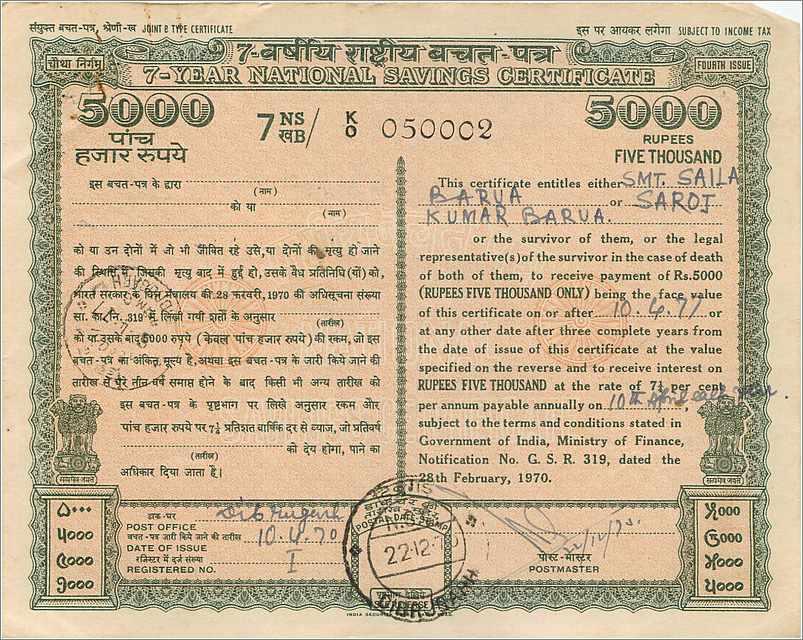 संयुक्त बचत-पत्र, श्रेणी-ख JOINT B TYPE CERTIFICATE
इस पर आयकर लगेगा SUBJECT TO INCOME TAX
7-वर्षीय राष्ट्रीय बचत-पत्र
चौथा निर्गम
7-YEAR NATIONAL SAVINGS CERTIFICATE
FOURTH ISSUE
5000
5000
पांच
हजार रुपये
7 NS
खB/
K
0
050002
RUPEES
FIVE THOUSAND
इस बचत-पत्र के द्वारा
(नाम)
को या
(नाम)
को या उन दोनों में जो भी जीवित रहे उसे, या दोनों की मृत्यु हो जाने
की स्थिति में जिसकी मृत्यु बाद में हुई हो, उसके वैध प्रतिनिधि (यों) को,
भारत सरकार के वित्त मंत्रालय की 28 फरवरी, 1970 की अधिसूचना संख्या
सा. का. नि. 319 में लिखी गयी शर्तों के अनुसार
(तारीख)
को या उसके बाद 5000 रुपये (केवल पांच हजार रुपये) की रकम, जो इस
बचत-पत्र का अंकित मूल्य है, अथवा इस बचत-पत्र के जारी किये जाने की
तारीख से पूरे तीन वर्ष समाप्त होने के बाद किसी भी अन्य तारीख को
इस बचत-पत्र के पृष्ठभाग पर लिखे अनुसार रकम और
पांच हजार रुपये पर 7¼ प्रतिशत वार्षिक दर से ब्याज, जो प्रतिवर्ष
(तारीख)
को देय होगा, पाने का
अधिकार दिया जाता है।
This certificate entitles either SMT. SAILA
BARUA or SAROJ
KUMAR BARUA.
or the survivor of them, or the legal
representative(s) of the survivor in the case of death
of both of them, to receive payment of Rs.5000
(RUPEES FIVE THOUSAND ONLY) being the face value
of this certificate on or after 10.4.77 or
at any other date after three complete years from
the date of issue of this certificate at the value
specified on the reverse and to receive interest on
RUPEES FIVE THOUSAND at the rate of 7¼ per cent
per annum payable annually on 10th April each year.
subject to the terms and conditions stated in
Government of India, Ministry of Finance,
Notification No. G. S. R. 319, dated the
28th February, 1970.
सत्यमेव जयते
सत्यमेव जयते
डाक-घर
POST OFFICE Dibrugarh
बचत-पत्र जारी किये जाने की तारीख
DATE OF ISSUE 10.4.70
रजिस्टर में दर्ज संख्या
REGISTERED NO. I
22.12.
DIBRUGARH
पोस्ट-मास्टर
POSTMASTER
५०००
५०००
INDIA SECURITY